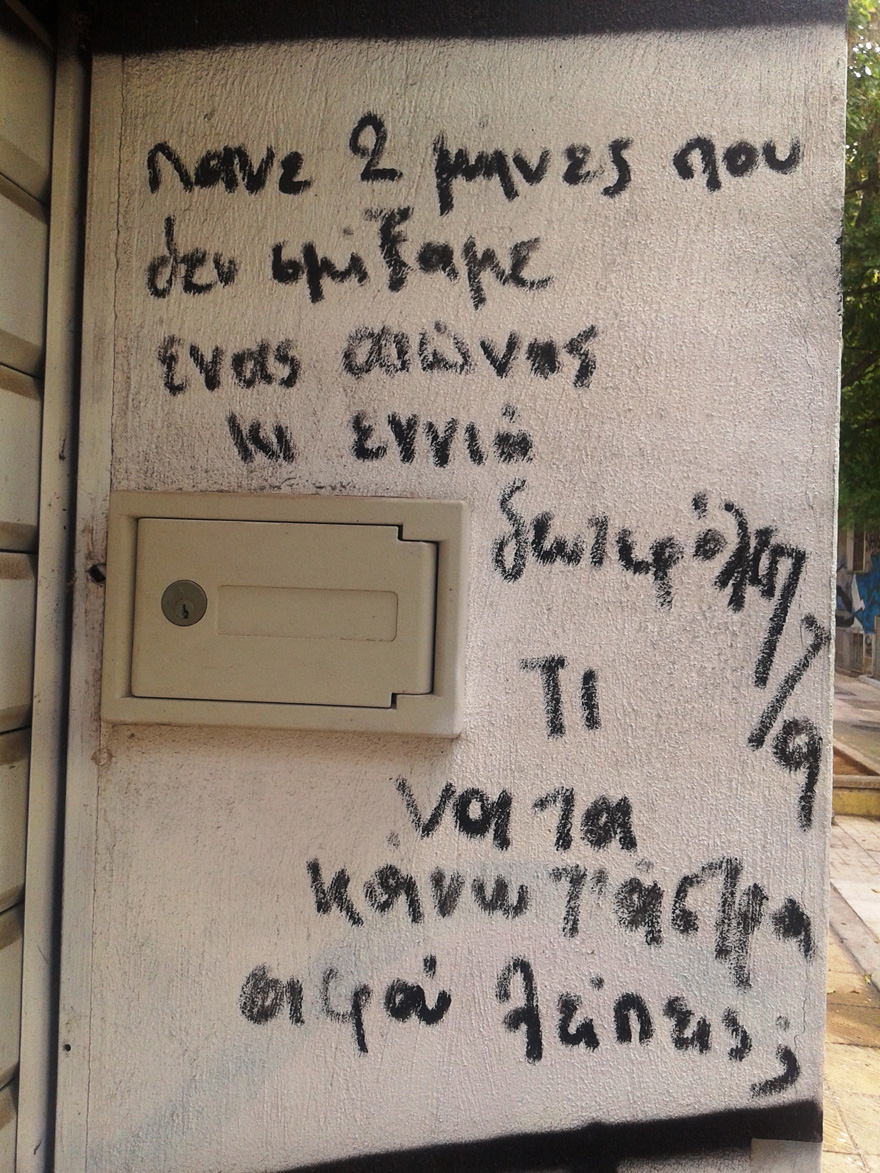 πανε 2 μηνες που
δεν σμίξαμε
ενας αιώνας
κι εννιά
δευτερόλεπ
/
τα
Τι
να τα
κάνω τ' άστρα
αφού λείπεις;